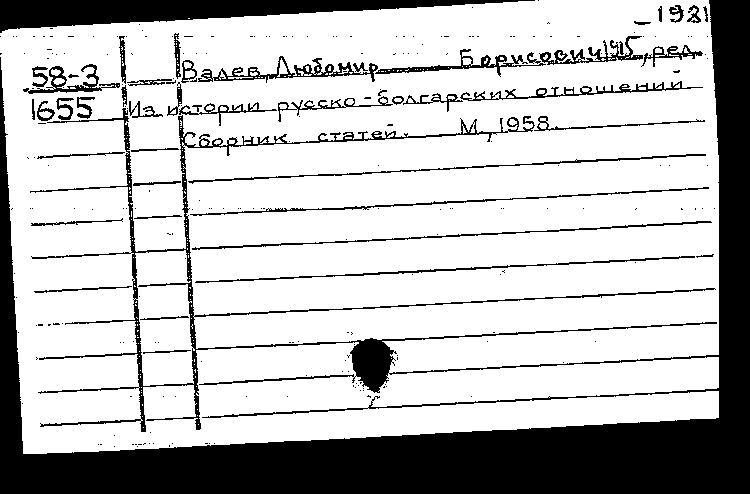 – 1981
58-3 Валев, Любомир Борисович 1915, ред.
1655 Из истории русско-болгарских отношений
Сборник статей. М., 1958.